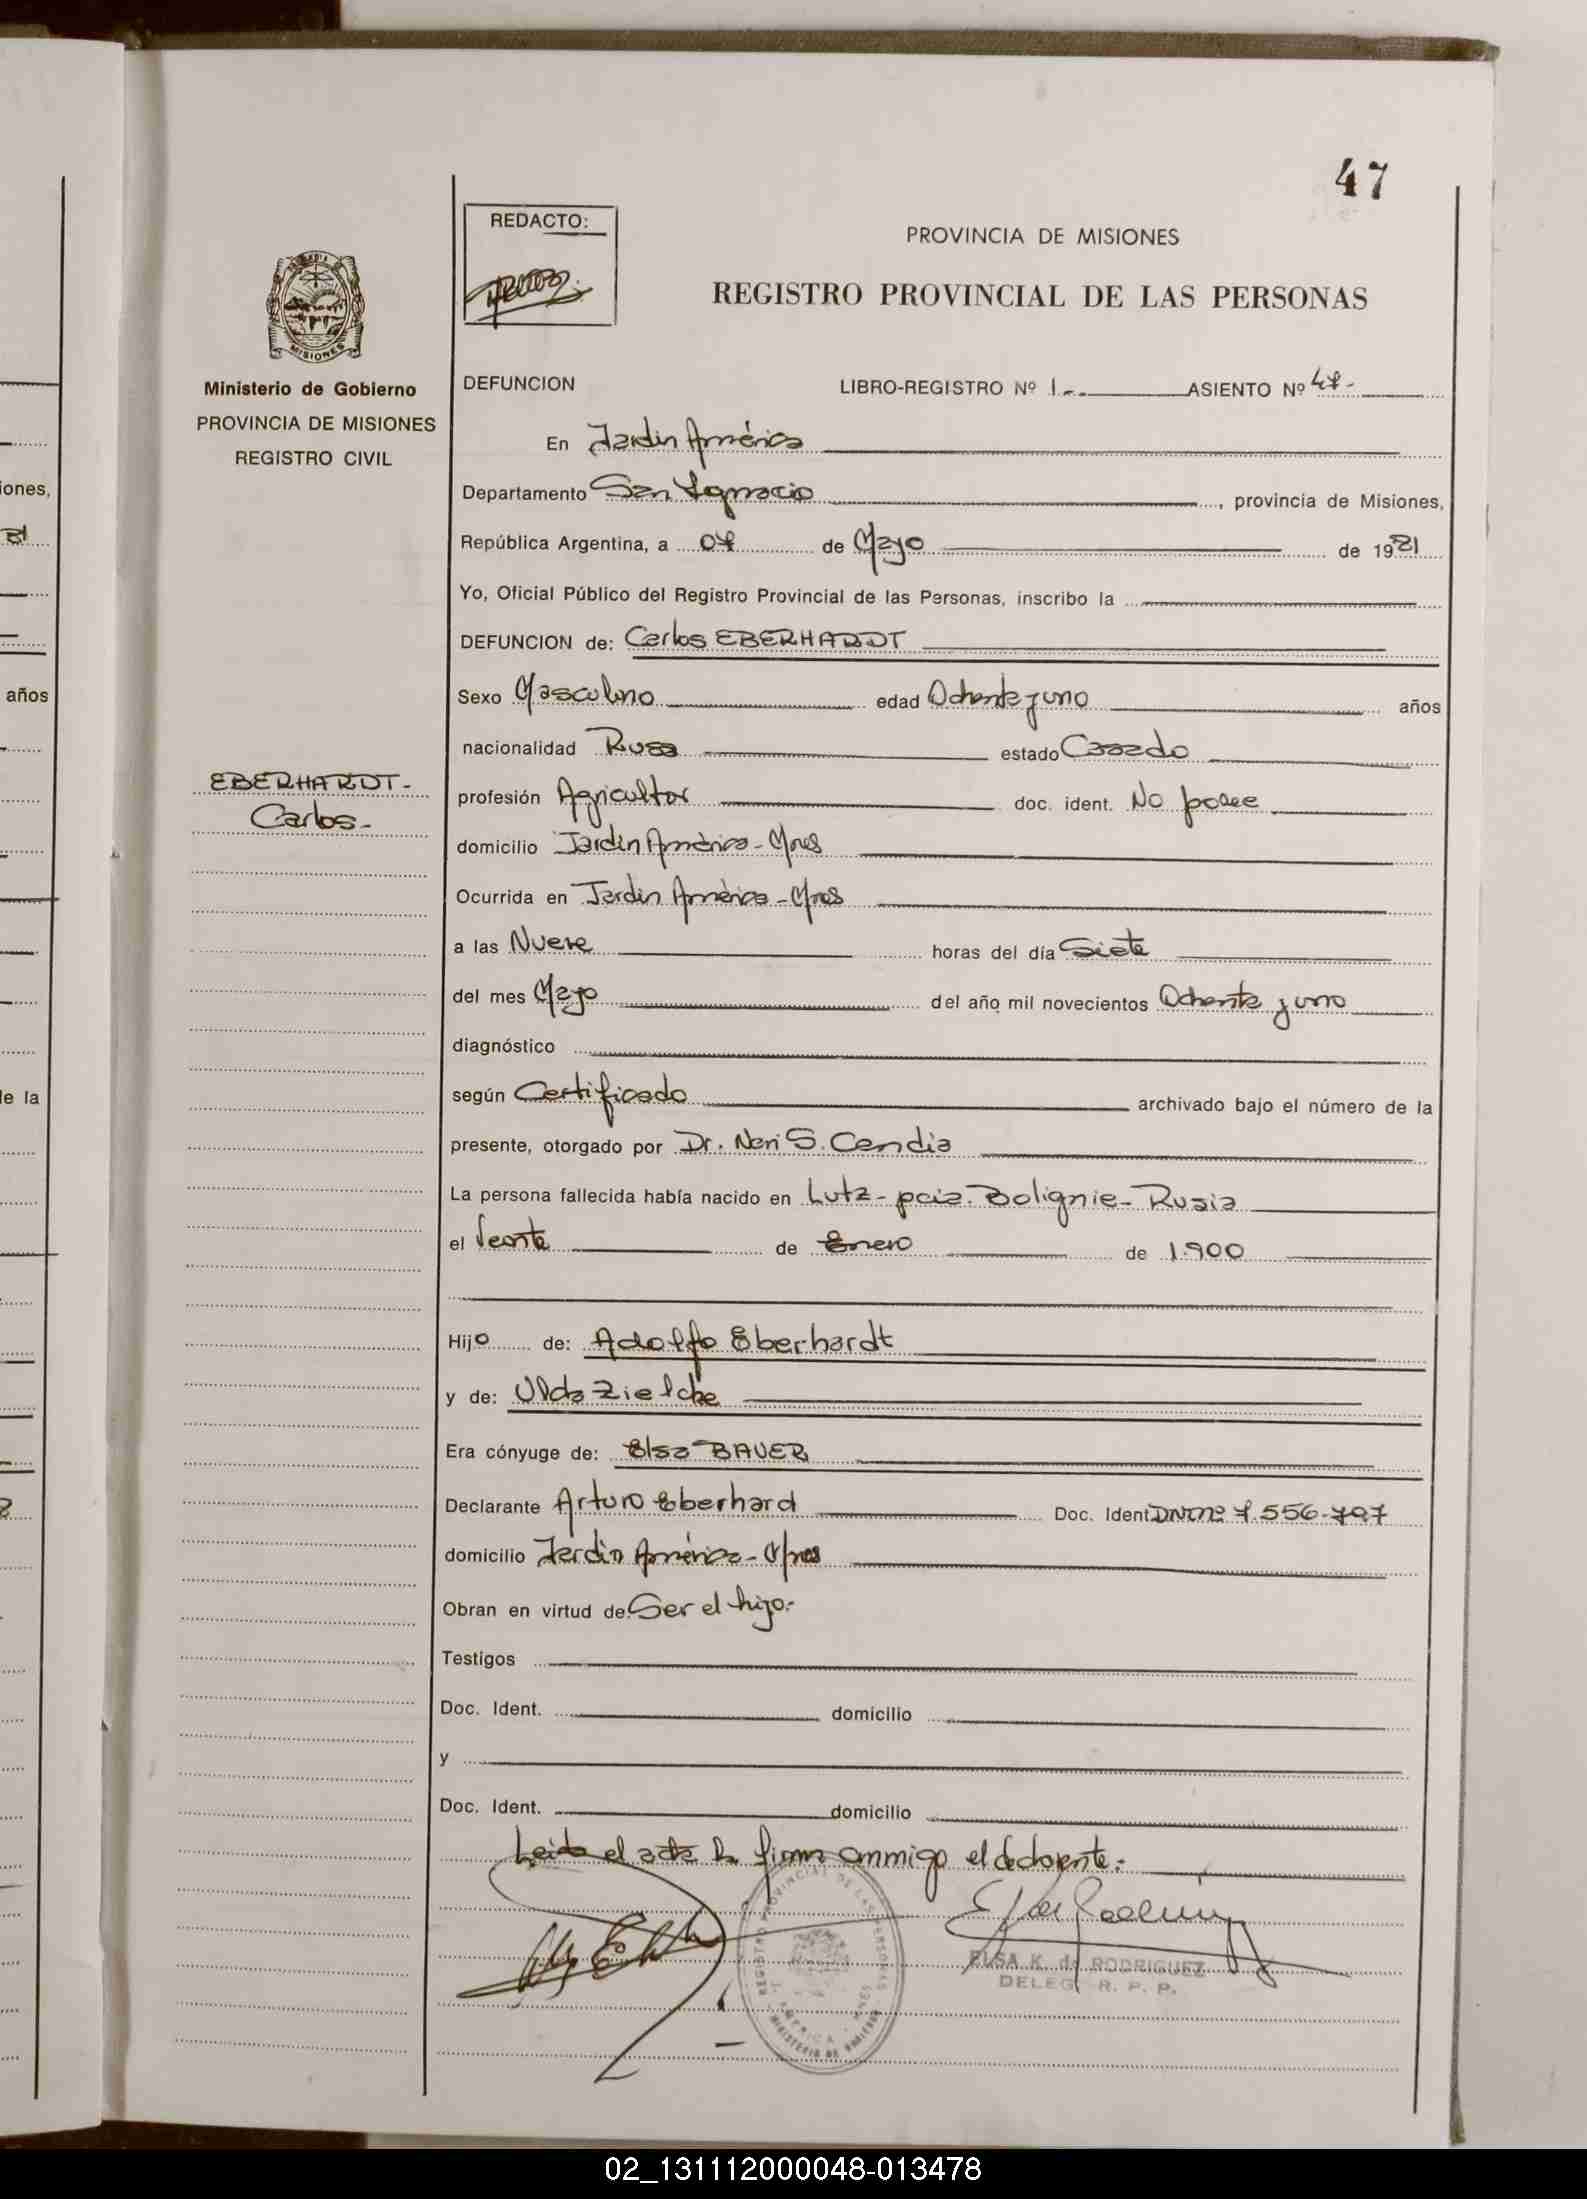 47
REDACTO:
PROVINCIA DE MISIONES
REGISTRO PROVINCIAL DE LAS PERSONAS
MISIONES
Ministerio de Gobierno
PROVINCIA DE MISIONES
REGISTRO CIVIL
DEFUNCION LIBRO-REGISTRO Nº 1.- ASIENTO Nº 47-
En Jardín América
Departamento San Ignacio, provincia de Misiones,
República Argentina, a 07 de Mayo de 1981
Yo, Oficial Público del Registro Provincial de las Personas, inscribo la
DEFUNCION de: Carlos EBERHARDT
Sexo Masculino edad Ochenta y uno años
nacionalidad Rusa estado Casado
EBERHARDT-
Carlos-
profesión Agricultor doc. ident. No posee
domicilio Jardín América-Mnes
Ocurrida en Jardín América-Mnes
a las Nueve horas del día Siete
del mes Mayo del año mil novecientos Ochenta y uno
diagnóstico
según Certificado archivado bajo el número de la
presente, otorgado por Dr. Neri S. Candia
La persona fallecida había nacido en Lutz-pcia. Bolignie-Rusia
el Veinte de Enero de 1.900
Hijo de: Adolfo Eberhardt
y de: Ulda Zielcke
Era cónyuge de: Elsa BAUER
Declarante Arturo Eberhard Doc. Ident. DNI nº 7.556.797
domicilio Jardín América-Mnes
Obran en virtud de: Ser el hijo.-
Testigos
Doc. Ident. domicilio
y
Doc. Ident. domicilio
Leída el acta la firma conmigo el declarante.-
ELSA K. de RODRIGUEZ
DELEG. R. P. P.
iones,
años
le la
02_131112000048-013478